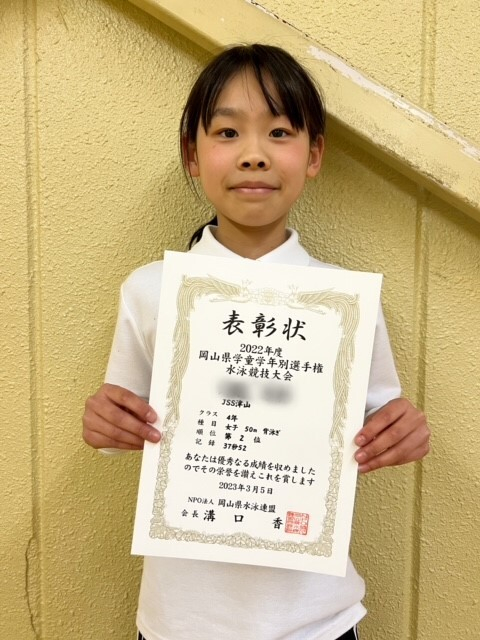 表彰状
2022年度
岡山県学童学年別選手権
水泳競技大会
JSS津山
クラス 4年
種目 女子 50m 背泳ぎ
順位 第 2 位
記録 37秒52
あなたは優秀なる成績を収めました
のでその栄誉を讃えこれを賞します
2023年3月5日
NPO法人 岡山県水泳連盟
会長 溝口 香